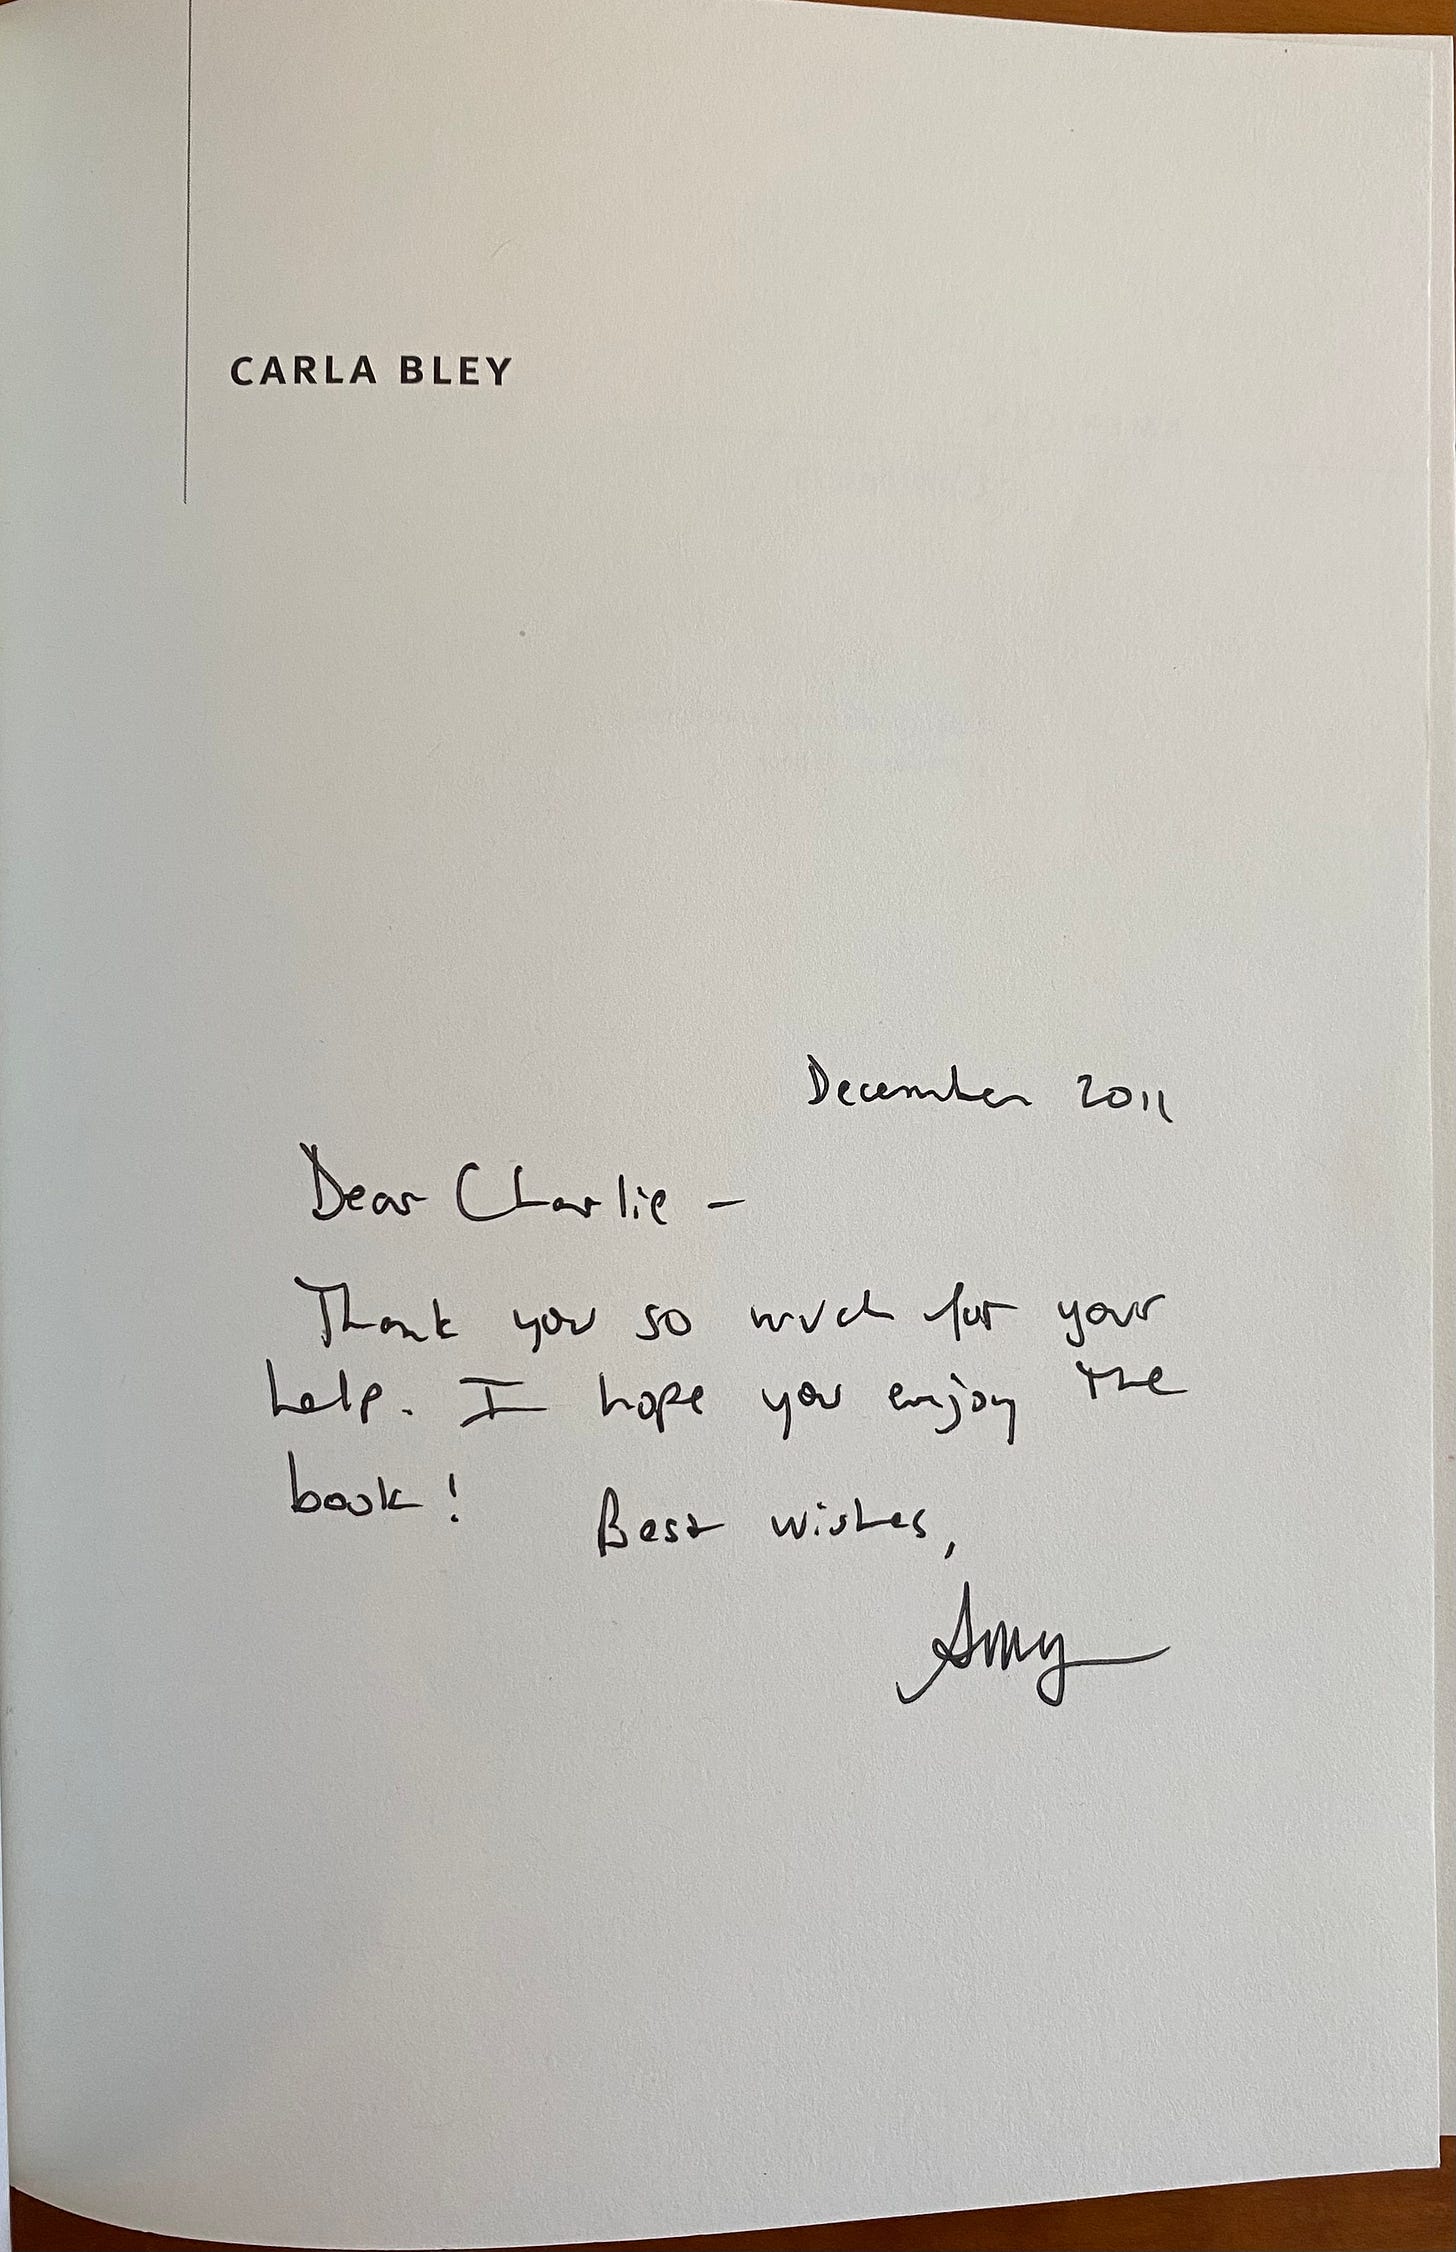 CARLA BLEY
December 2011
Dear Charlie –
Thank you so much for your
help. I hope you enjoy the
book!
Best wishes,
Amy